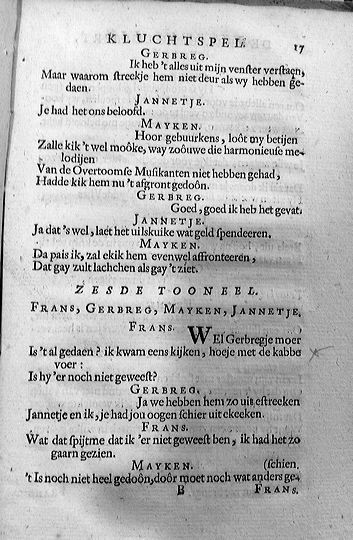 KLUCHTSPEL. 17
GERBREG.
Ik heb 't alles uit mijn venster verstaen,
Maar waarom streekje hem niet deur als wy hebben ge-
daen.
JANNETJE.
Je had het ons beloofd.
MAYKEN.
Hoor gebuurkens, loôt my betijen
Zalle kik 't wel moôke, way zoôuwe die harmonieuse me-
lodijen
Van de Overtoomse Musikanten niet hebben gehad,
Hadde kik hem nu 't afgront gedoôn.
GERBREG.
Goed, goed ik heb het gevat.
JANNETJE.
Ja dat 's wel, laet het uilskuike wat geld spendeeren.
MAYKEN.
Da pais ik, zal ekik hem evenwel affronteeren,
Dat gay zult lachchen als gay 't ziet.
ZESDE TOONEEL.
FRANS, GERBREG, MAYKEN, JANNETJE,
FRANS.
WEl Gerbregje moer
Is 't al gedaen? ik kwam eens kijken, hoeje met de kabbe
voer:
Is hy 'er noch niet geweest?
GERBREG.
Ja we hebben hem zo uitestreeken
Jannetje en ik, je had jou oogen schier uit ekeeken.
FRANS.
Wat dat spijtme dat ik 'er niet geweest ben, ik had het zo
gaarn gezien.
MAYKEN. (schien.
't Is noch niet heel gedoôn, doôr moet noch wat anders ge-
B FRANS.